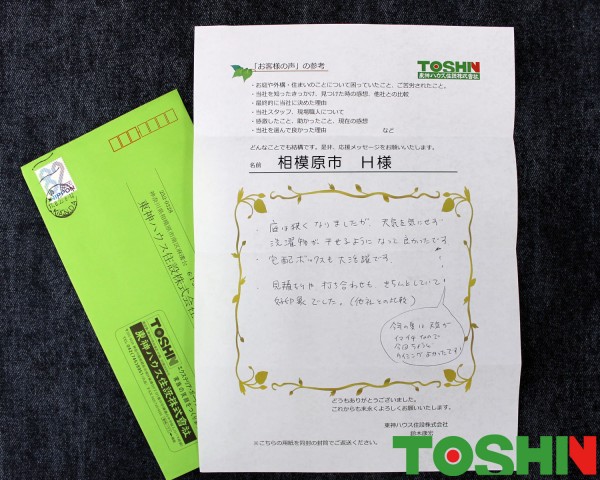 「お客様の声」の参考
TOSHIN
東神ハウス住設株式会社
・お庭や外構・住まいのことについて困っていたこと、ご苦労されたこと。
・当社を知ったきっかけ、見つけた時の感想、他社との比較
・最終的に当社に決めた理由
・当社スタッフ、現場職人について
・感激したこと、助かったこと、現在の感想
・当社を選んで良かった理由 など
どんなことでも結構です。是非、応援メッセージをお願いいたします。
名前 相模原市 H様
・庭は狭くなりましたが、天気を気にせず
洗濯物が干せるようになって良かったです!
・宅配ボックスも大活躍です。
・見積もりや打ち合わせも、きちんとしていて
好印象でした。(他社との比較)
今年の夏は天気が
イマイチなので
今はちょうど
タイミングよかったです!
どうもありがとうございました。
これからも末永くよろしくお願いいたします。
東神ハウス住設株式会社
鈴木康宏
※こちらの用紙を同封の封筒でご返送ください。
NIPPON
東神ハウス住設株式会社
TOSHIN
東神ハウス住設株式会社
TOSHIN